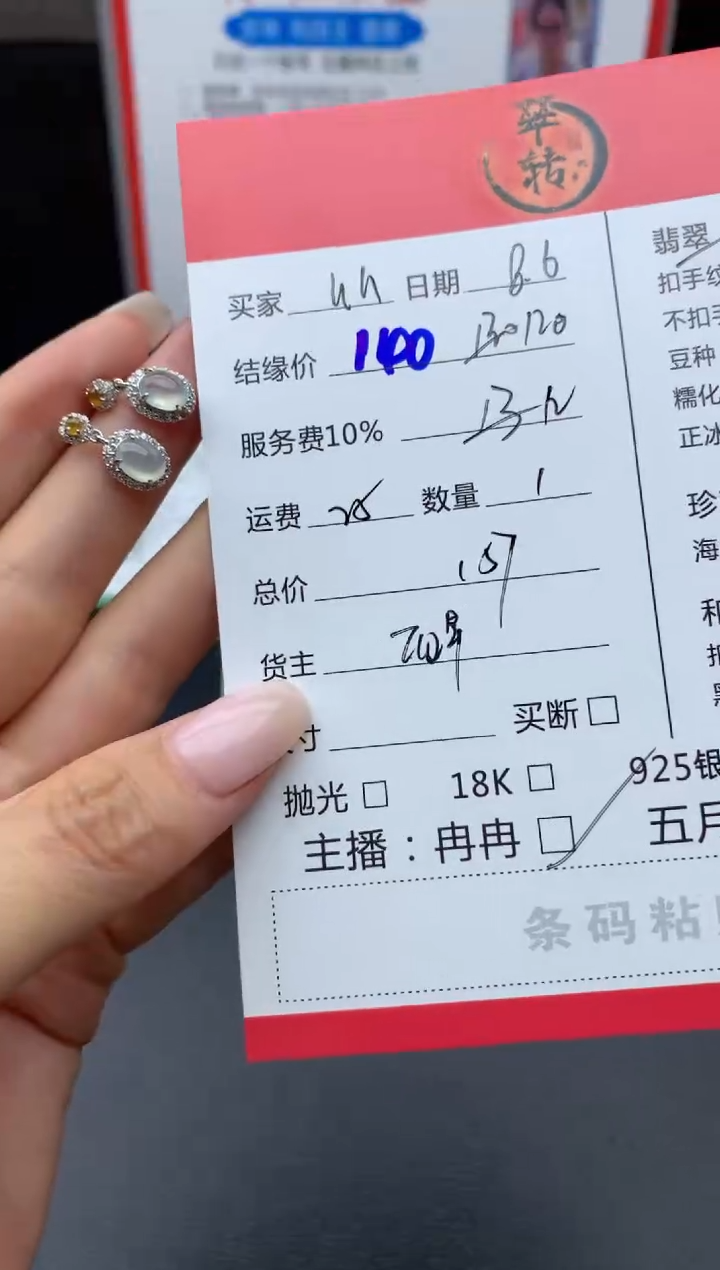 翠
转
买家 hh 日期 8.6
结缘价 1400 130 120
服务费10% 13 12
运费 25 数量 1
总价 157
货主
寸 买断
抛光 18K 925银
主播：冉冉 五月
条码粘贴
翡翠
扣手纹
不扣手
豆种
糯化
正冰
珍
海
和